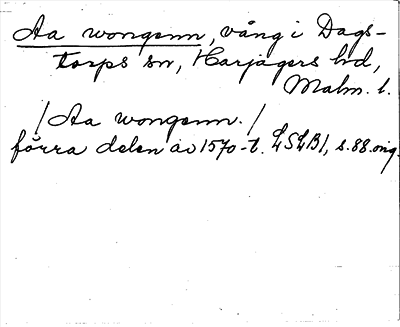 Aa wongenn, vång i Dags-
torps sn, Harjagers hd,
Malm. l.
/Aa wongenn./
förra delen av 1570-t. LSLB1, s. 88. orig.